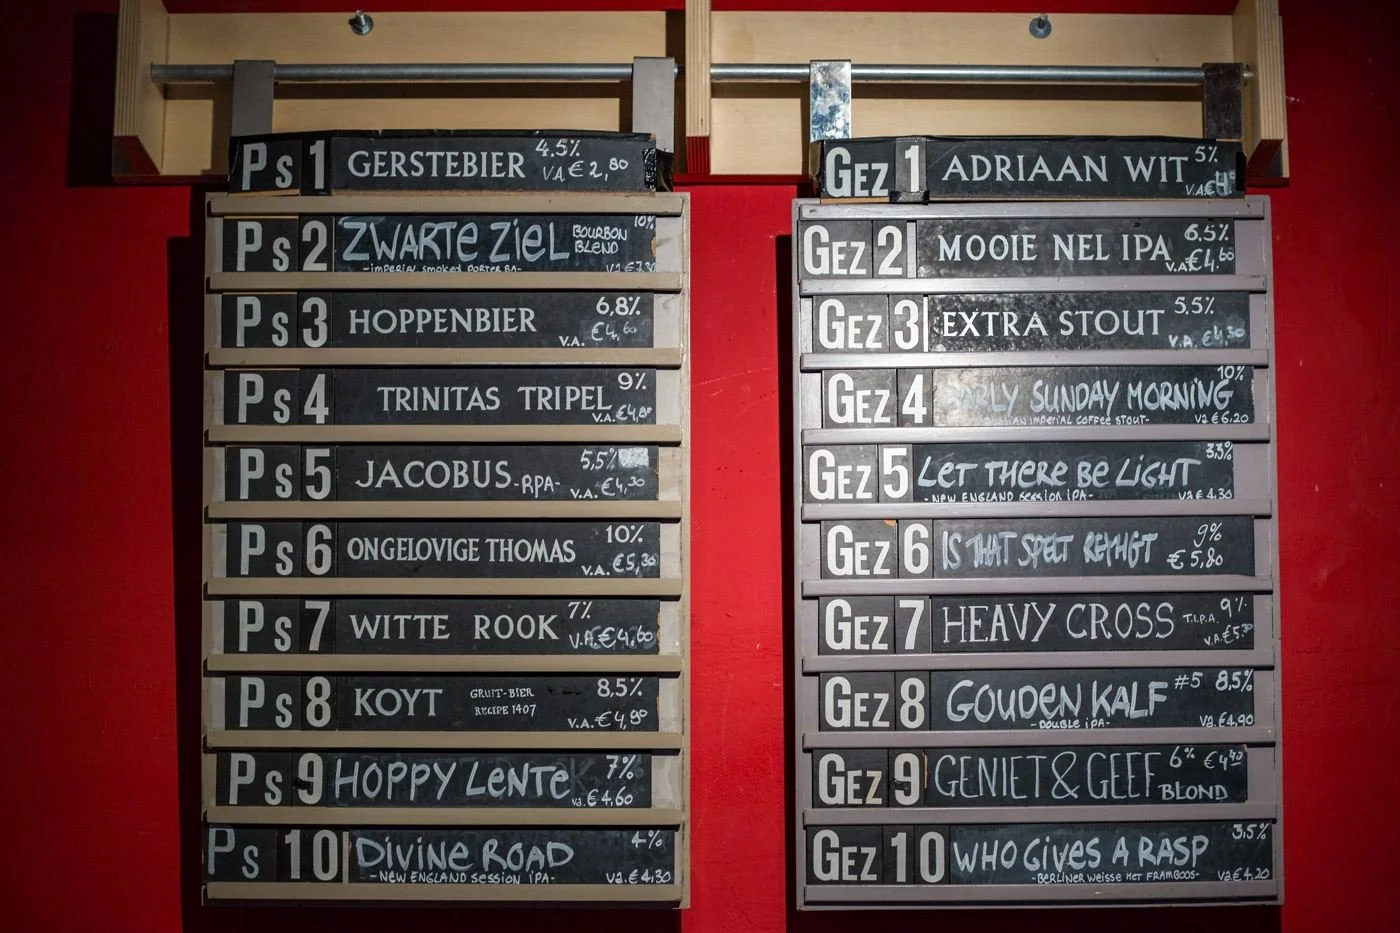 Ps 1 GERSTEBIER 4.5%
VA € 2,80
Ps 2 ZWARTE ZIEL BOURBON BLEND 10%
-IMPERIAL SMOKED PORTER BA- va €7,30
Ps 3 HOPPENBIER 6,8%
V.A. €4,60
Ps 4 TRINITAS TRIPEL 9%
V.A. €4,80
Ps 5 JACOBUS -RPA- 5,5%
V.A. €4,30
Ps 6 ONGELOVIGE THOMAS 10%
V.A. €5,30
Ps 7 WITTE ROOK 7%
V.A. €4,60
Ps 8 KOYT GRUIT-BIER RECIPE 1407 8,5%
V.A. €4,80
Ps 9 HOPPY LENTE 7%
va. €4,60
Ps 10 DIVINE ROAD 4%
-NEW ENGLAND SESSION IPA- va. €4,30
Gez 1 ADRIAAN WIT 5%
V.A.
Gez 2 MOOIE NEL IPA 6.5%
V.A. €4,60
Gez 3 EXTRA STOUT 5.5%
V.A. €4,30
Gez 4 EARLY SUNDAY MORNING 10%
-RUSSIAN IMPERIAL COFFEE STOUT- va €6,20
Gez 5 LET THERE BE LIGHT 3.3%
-NEW ENGLAND SESSION IPA- va € 4,30
Gez 6 IS THAT SPELT 9%
€ 5,80
Gez 7 HEAVY CROSS T.I.P.A. 9%
V.A. €5,30
Gez 8 GOUDEN KALF #5 8,5%
-DOUBLE IPA- va. €4,90
Gez 9 GENIET & GEEF 6% €4,40
BLOND
Gez 10 WHO GIVES A RASP 3,5%
-BERLINER WEISSE MET FRAMBOOS- va € 4,20